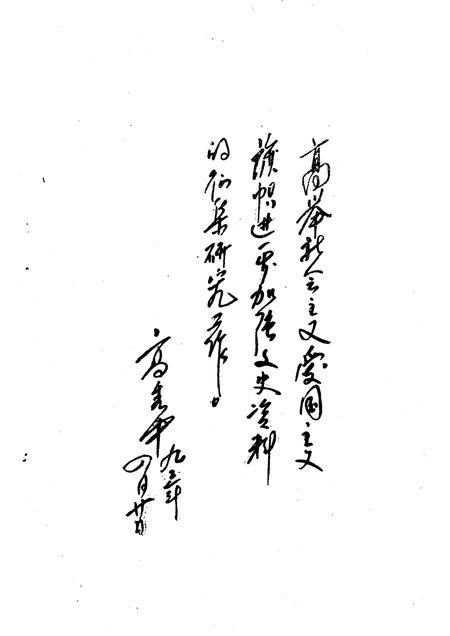 高举社会主义爱国主义
旗帜进一步加强文史资料
的征集研究工作。
高
九三年
四月廿日